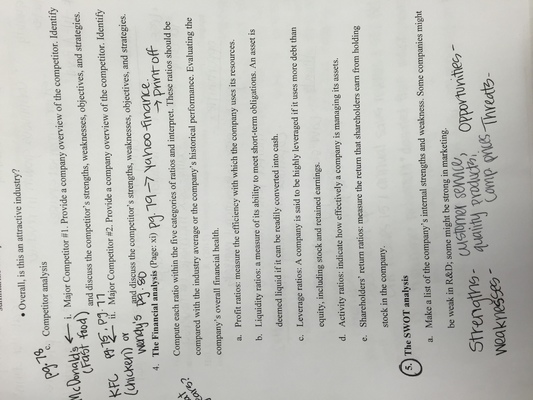 • Overall, is this an attractive industry?
pg 78
c. Competitor analysis
McDonald's (Fast food) ←
i. Major Competitor #1. Provide a company overview of the competitor. Identify
and discuss the competitor's strengths, weaknesses, objectives, and strategies.
KFC (chicken) or wendy's
pg 75, pg. 77
ii. Major Competitor #2. Provide a company overview of the competitor. Identify
and discuss the competitor's strengths, weaknesses, objectives, and strategies.
pg. 80
4. The Financial analysis (Page: xi) pg 79 → yahoo finance
→ print off
Compute each ratio within the five categories of ratios and interpret. These ratios should be
compared with the industry average or the company's historical performance. Evaluating the
company's overall financial health.
a. Profit ratios: measure the efficiency with which the company uses its resources.
b. Liquidity ratios: a measure of its ability to meet short-term obligations. An asset is
deemed liquid if it can be readily converted into cash.
c. Leverage ratios: A company is said to be highly leveraged if it uses more debt than
equity, including stock and retained earnings.
d. Activity ratios: indicate how effectively a company is managing its assets.
e. Shareholders' return ratios: measure the return that shareholders earn from holding
stock in the company.
5. The SWOT analysis
a. Make a list of the company's internal strengths and weakness. Some companies might
be weak in R&D; some might be strong in marketing.
Strengths- customer service, Opportunities-
quality products,
Weaknesses- comp prices- Threats-